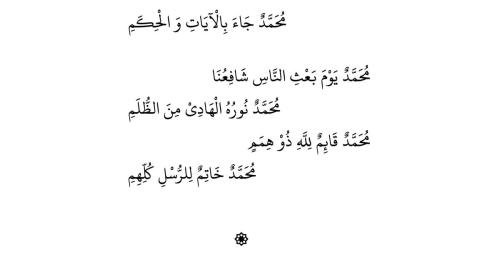 مُحَمَّدٌ جَاءَ بِالْآيَاتِ وَ الْحِكَمِ
مُحَمَّدٌ يَوْمَ بَعْثِ النَّاسِ شَافِعُنَا
مُحَمَّدٌ نُورُهُ الْهَادِيْ مِنَ الظُّلَمِ
مُحَمَّدٌ قَائِمٌ لِلَّهِ ذُوْ هِمَمٍ
مُحَمَّدٌ خَاتِمٌ لِلرُّسْلِ كُلِّهِمِ